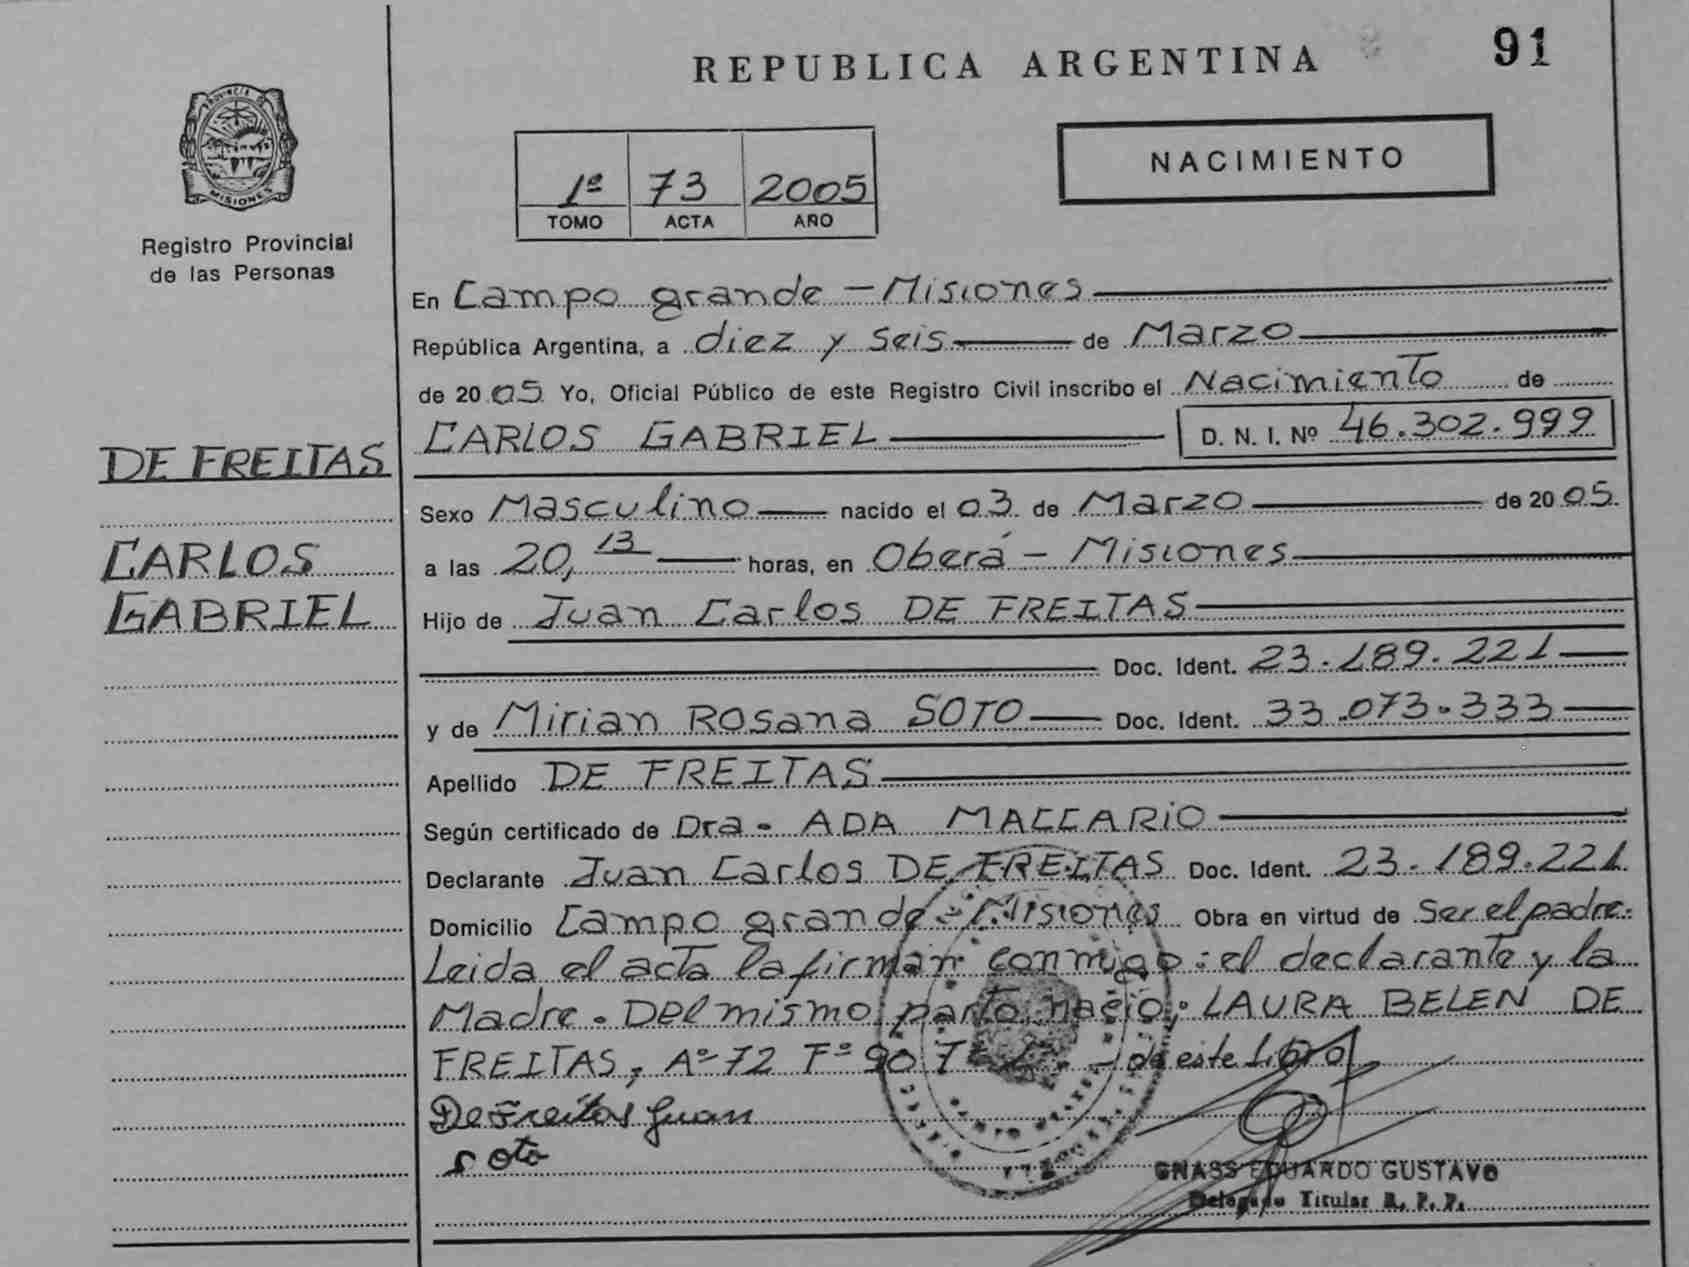 REPUBLICA ARGENTINA
91
PROVINCIA DE
MISIONES
Registro Provincial
de las Personas
1º 73 2005
TOMO ACTA AÑO
NACIMIENTO
En Campo grande - Misiones
República Argentina, a diez y seis de Marzo
de 2005 Yo, Oficial Público de este Registro Civil inscribo el Nacimiento de
CARLOS GABRIEL D. N. I. Nº 46.302.999
DE FREITAS
CARLOS
GABRIEL
Sexo Masculino nacido el 03 de Marzo de 2005.
a las 20,13 horas, en Oberá - Misiones
Hijo de Juan Carlos DE FREITAS
Doc. Ident. 23.189.221
y de Mirian Rosana SOTO Doc. Ident. 33.073.333
Apellido DE FREITAS
Según certificado de Dra. ADA MACCARIO
Declarante Juan Carlos DE FREITAS Doc. Ident. 23.189.221
Domicilio Campo grande - Misiones Obra en virtud de Ser el padre.
Leida el acta la firman conmigo: el declarante y la
Madre. Del mismo parto nació: LAURA BELEN DE
FREITAS, Aº 72 Fº 90 de este Libro
De Freitas Juan
Soto
GNASS EDUARDO GUSTAVO
Delegado Titular R. P. P.